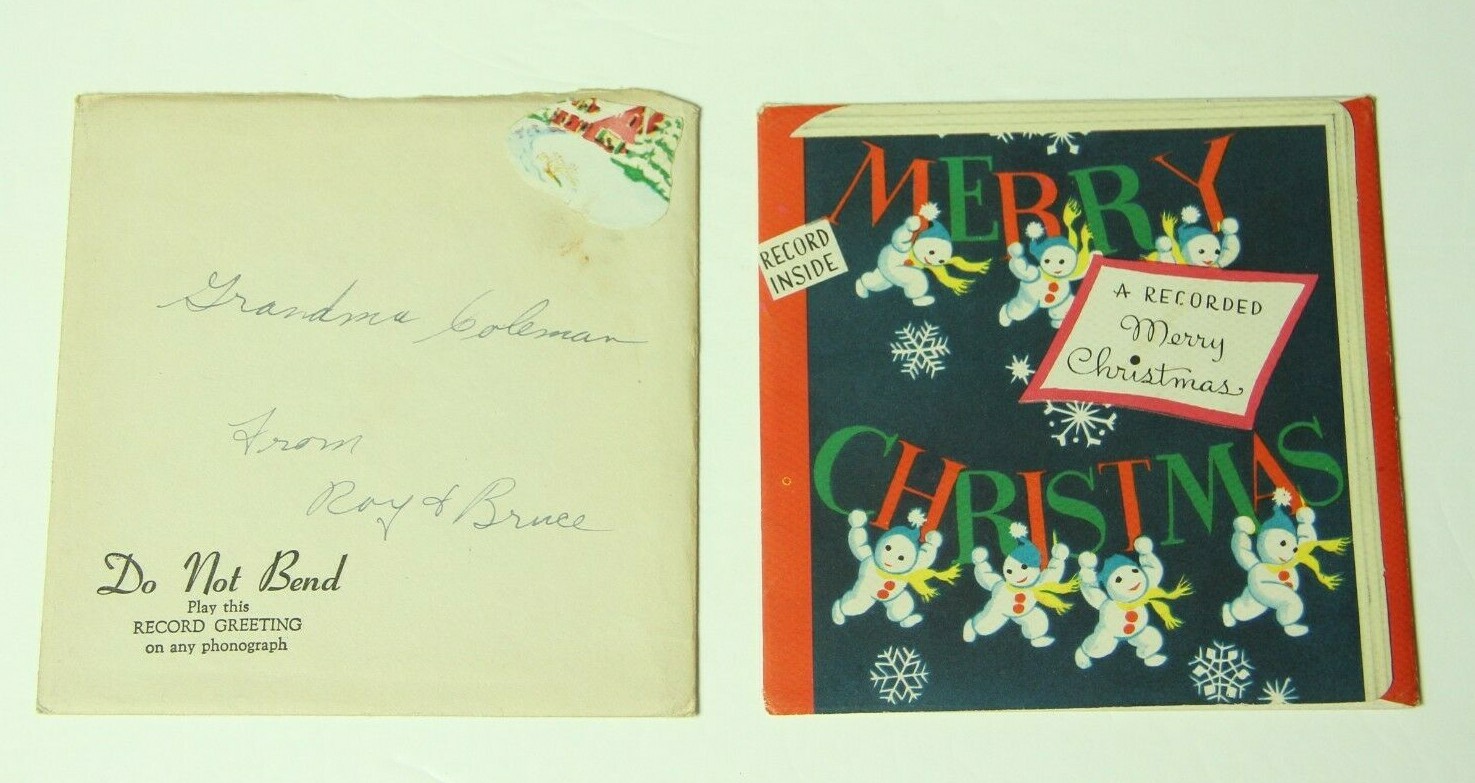 Grandma Coleman
From
Roy & Bruce
Do Not Bend
Play this
RECORD GREETING
on any phonograph
MERRY
RECORD
INSIDE
A RECORDED
Merry
Christmas
CHRISTMAS